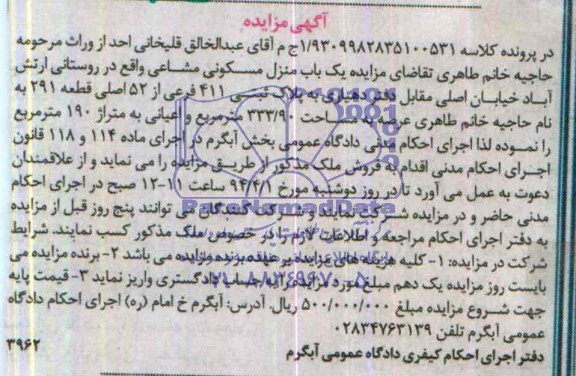 آگهی مزایده
در پرونده کلاسه ۹۳۰۹۹۸۲۸۳۵۱۰۰۵۳۱/۱ج م آقای عبدالخالق قلیخانی احد از وراث مرحومه
حاجیه خانم طاهری تقاضای مزایده یک باب منزل مسکونی مشاعی واقع در روستای ارتش
آباد خیابان اصلی مقابل دفتر دهیاری به پلاک ثبتی ۴۱۱ فرعی از ۵۲ اصلی قطعه ۲۹۱ به
نام حاجیه خانم طاهری عرصه به مساحت ۳۳۳/۹۰ مترمربع و اعیانی به متراژ ۱۹۰ مترمربع
را نموده لذا اجرای احکام مدنی دادگاه عمومی بخش آبگرم در اجرای ماده ۱۱۴ و ۱۱۸ قانون
اجرای احکام مدنی اقدام به فروش ملک مذکور از طریق مزایده را می نماید و از علاقمندان
دعوت به عمل می آورد تا در روز دوشنبه مورخ ۹۴/۴/۱ ساعت ۱۱-۱۲ صبح در اجرای احکام
مدنی حاضر و در مزایده شرکت نمایند و شرکت کنندگان می توانند پنج روز قبل از مزایده
به دفتر اجرای احکام مراجعه و اطلاعات لازم را در خصوص ملک مذکور کسب نمایند. شرایط
شرکت در مزایده: ۱- کلیه هزینه های مزایده بر عهده برنده مزایده می باشد ۲- برنده مزایده می
بایست روز مزایده یک دهم مبلغ مورد مزایده را به حساب دادگستری واریز نماید ۳- قیمت پایه
جهت شروع مزایده مبلغ ۵۰۰/۰۰۰/۰۰۰ ریال. آدرس: آبگرم خ امام (ره) اجرای احکام دادگاه
عمومی آبگرم تلفن ۰۲۸۳۴۷۶۳۱۳۹
دفتر اجرای احکام کیفری دادگاه عمومی آبگرم
۳۹۶۲
ParsNamadData